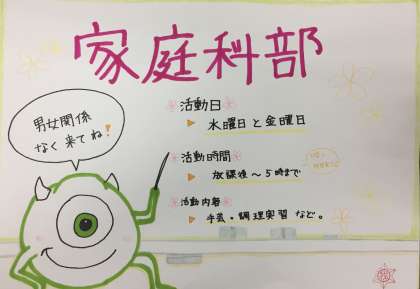 家庭科部
男女関係
なく来てね!
活動日
水曜日と金曜日
活動時間
放課後〜5時まで
活動内容
手芸・調理実習など。